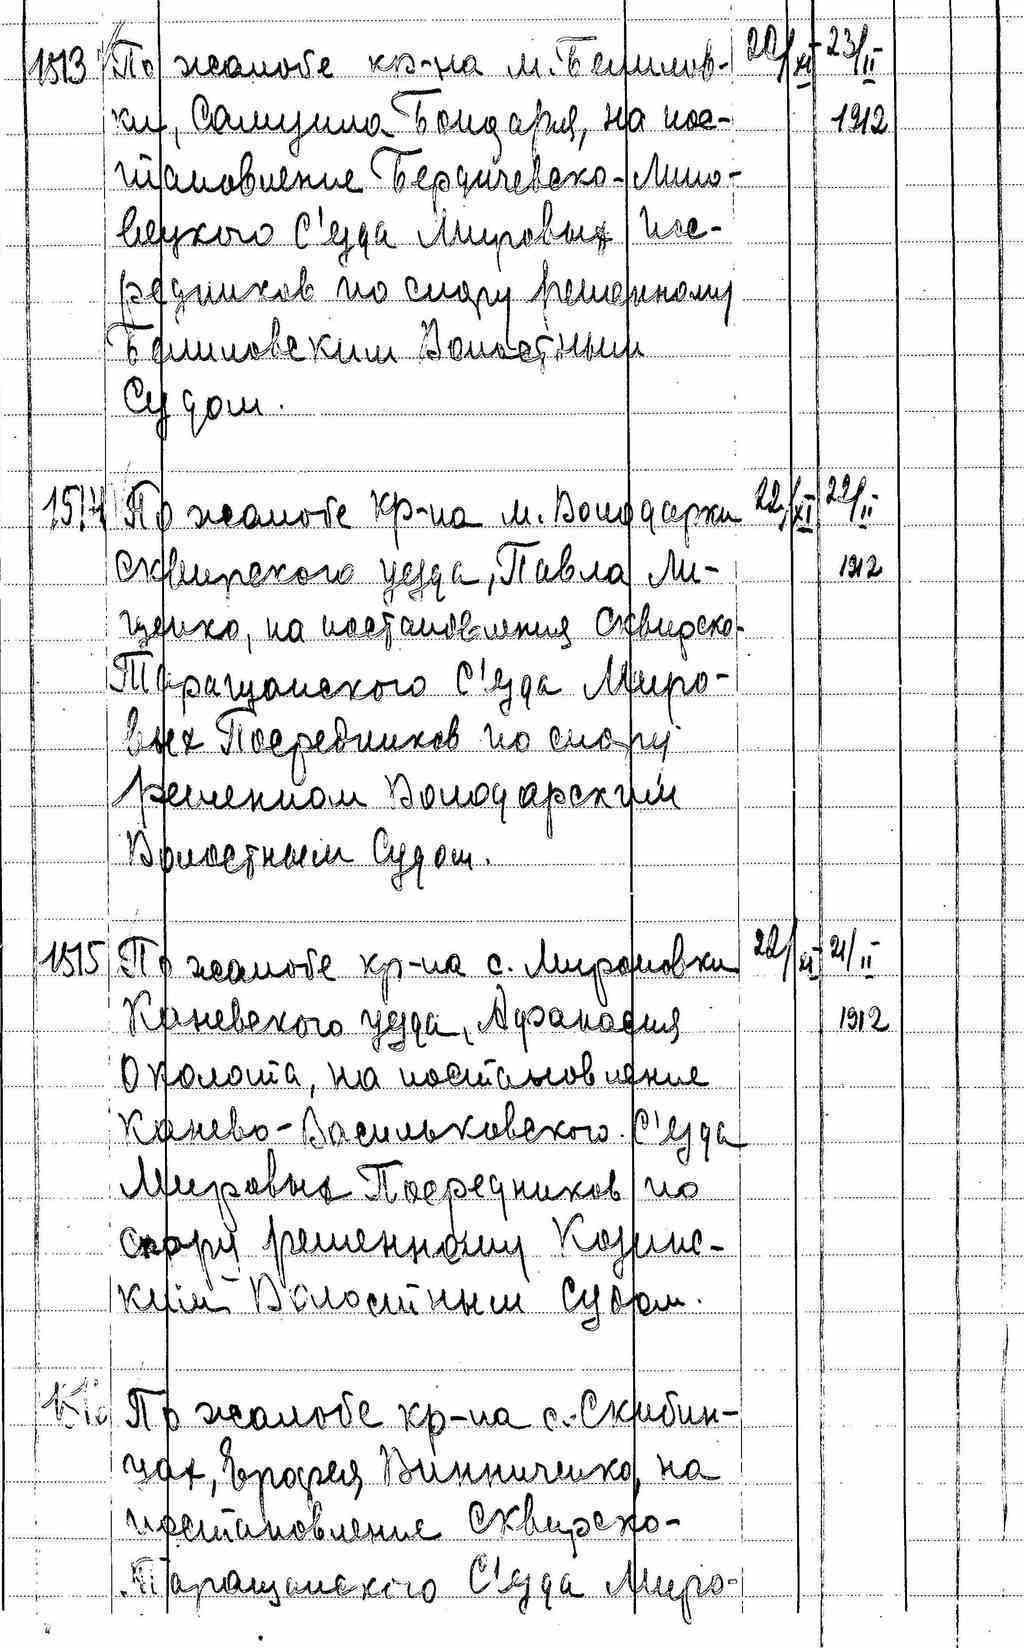 1513 По жалобе кр-на м. Белилов- 22/XI 23/II
ки, Самуила Бондаря, на пос- 1912
тановление Бердичевско-Липо-
вецкого С'езда Мировых Пос-
редников по спору решенному
Белиловским Волостным
Судом.
1514 По жалобе кр-на м. Володарки 22/XI 22/II
Сквирского уезда, Павла Ли- 1912
щенко, на постановления Сквирско-
Таращанского С'езда Миро-
вых Посредников по спору
решенном Володарским
Волостным Судом.
1515 По жалобе кр-на с. Мироновки 22/XI 21/II
Каневского уезда, Афанасия 1912
Околота, на постановление
Канево-Васильковского С'езда
Мировых Посредников по
спору решенному Козинс-
ким Волостным Судом.
По жалобе кр-на с. Скибин-
цах, Ерофея Винниченко, на
постановление Сквирско-
Таращанского С'езда Миро-